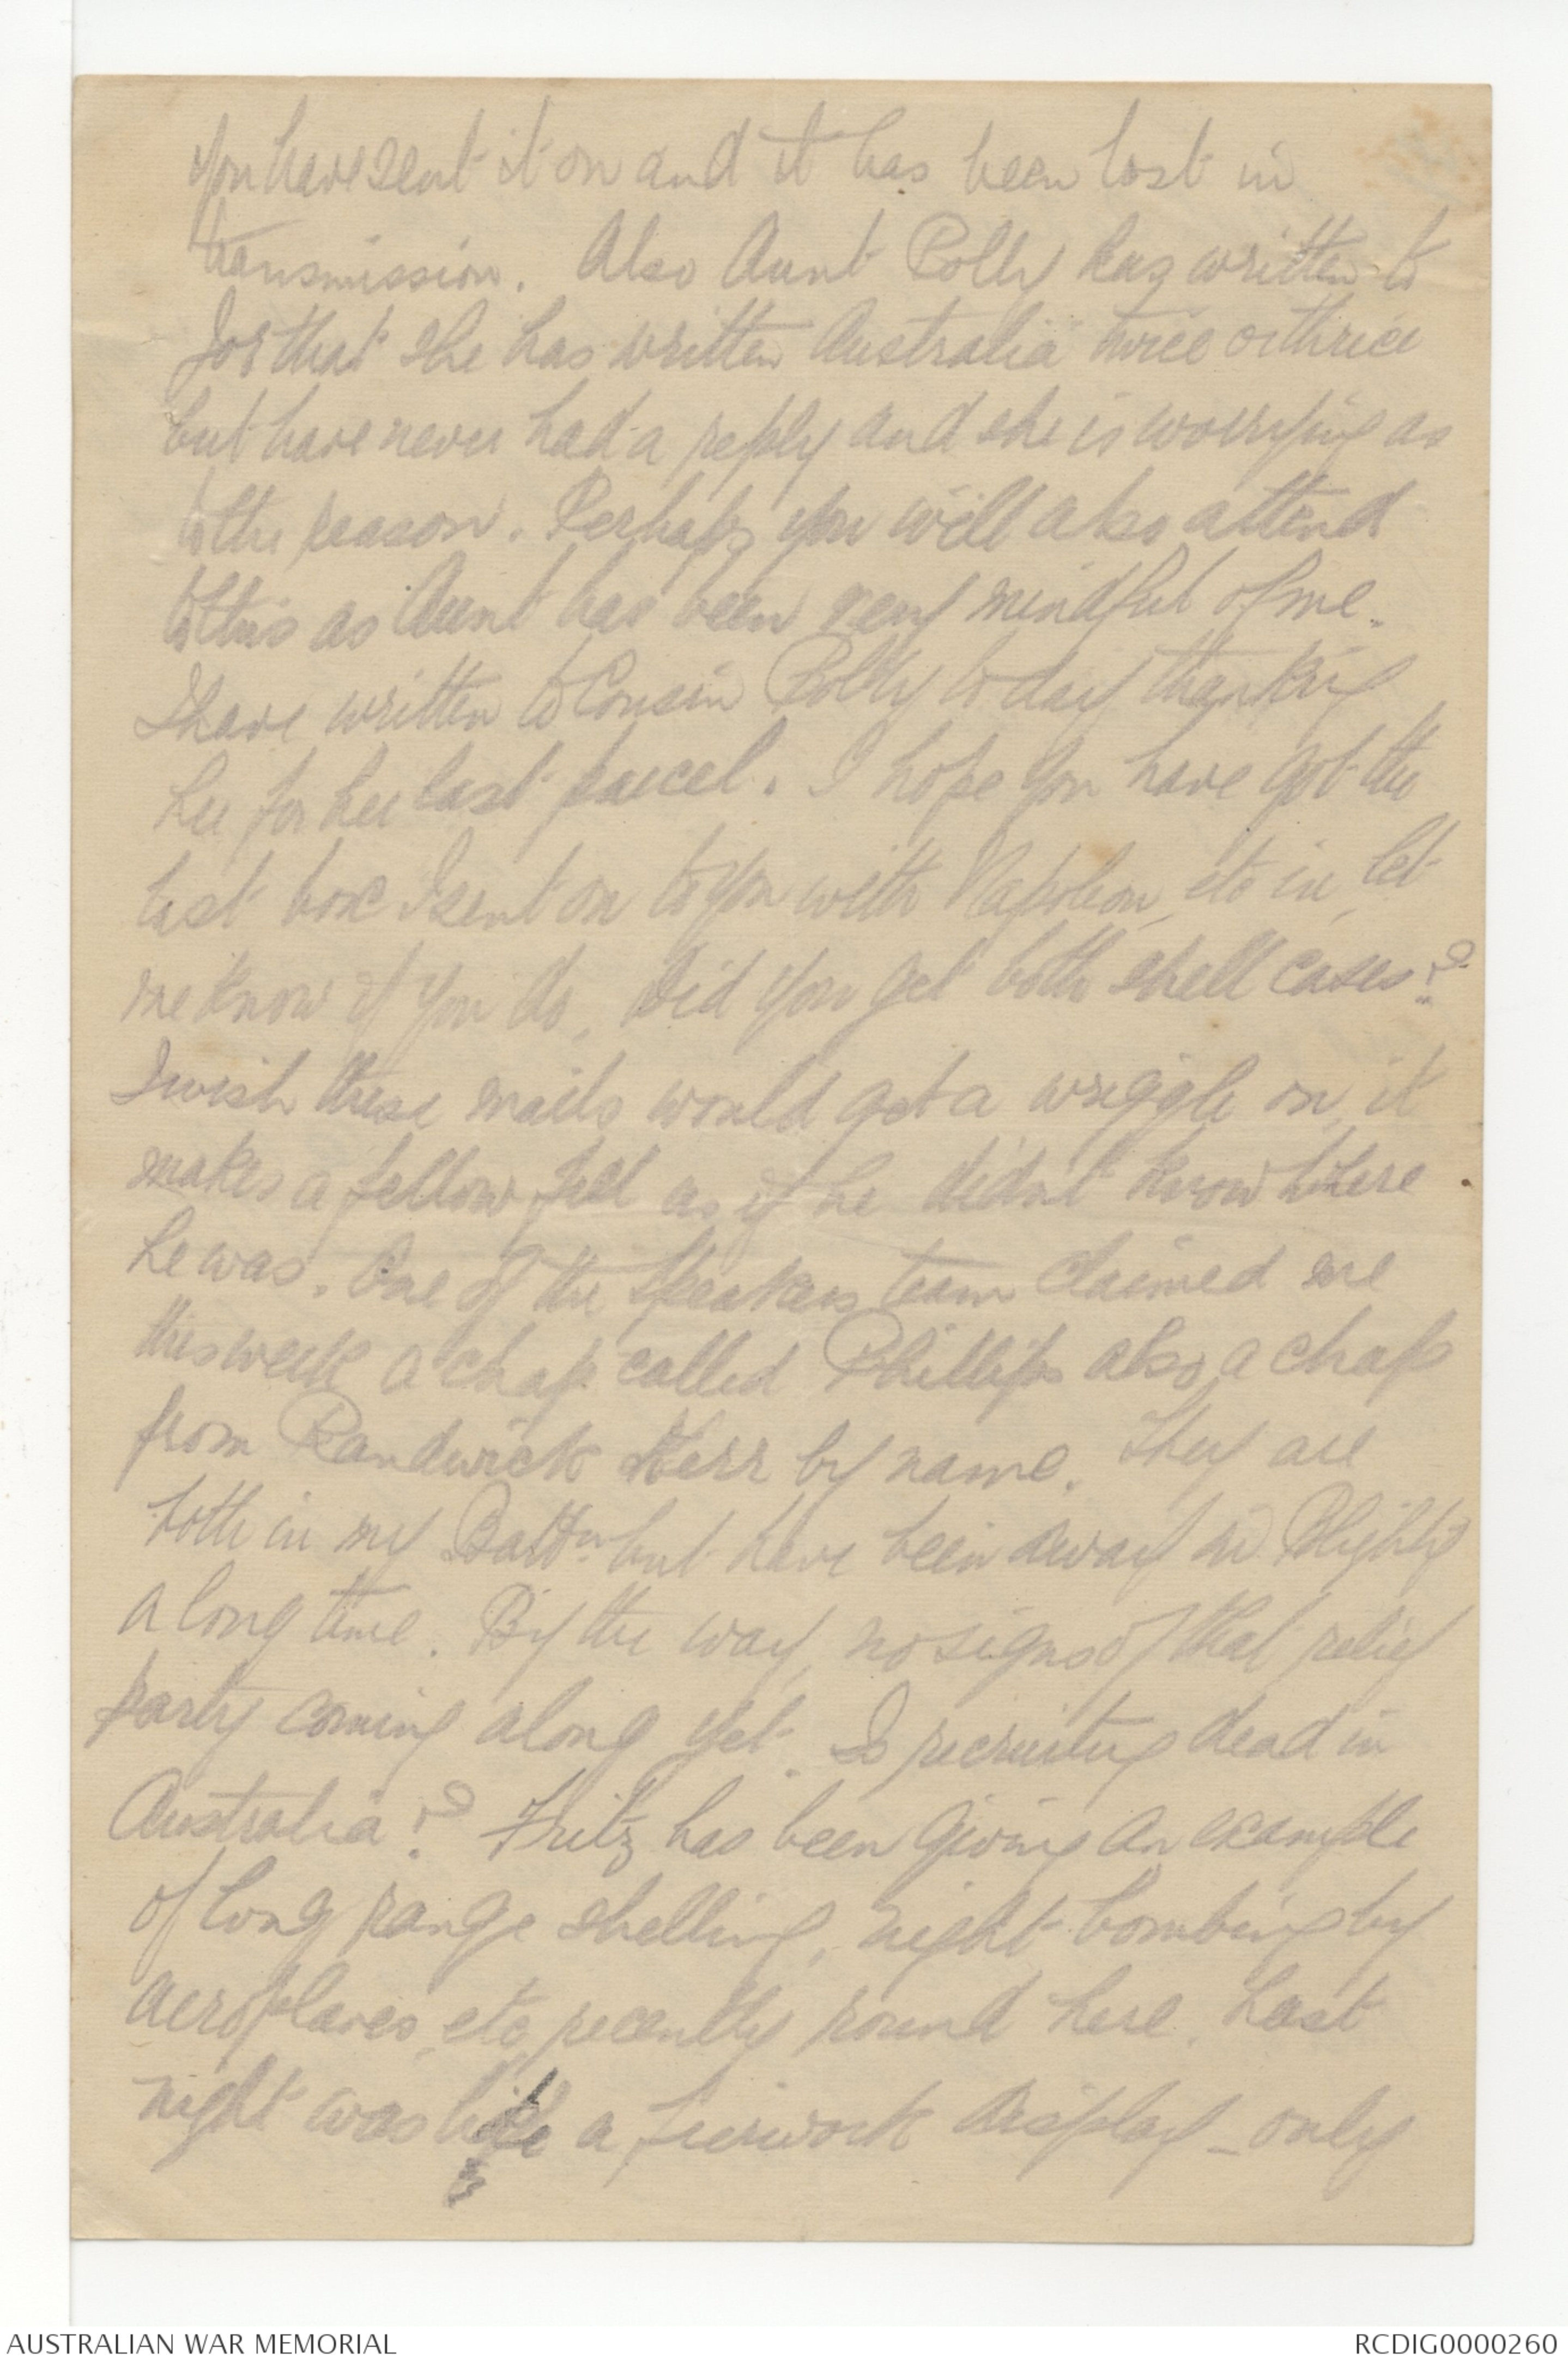 you have sent it on and it has been lost in
transmission. Also Aunt Polly has written to
Joe that she has written Australia twice or thrice
but have never had a reply and she is worrying as
to the reason. Perhaps you will also attend
to this as Aunt has been very mindful of me.
I have written to Cousin Polly to day thanking
her for her last parcel. I hope you have got the
last box I sent on to you with Napoleon, etc in, let
me know if you do. Did you get both shell cases?
I wish these mails would get a wriggle on, it
makes a fellow feel as if he didn't know where
he was. One of the Speakers team claimed me
this week a chap called Phillips also a chap
from Randwick Kerr by name. They are
both in my Battn but have been away in Blighty
a long time. By the way, no signs of that relief
party coming along yet. Is recruiting dead in
Australia? Fritz has been giving an example
of long range shelling, night bombing by
aeroplanes, etc, recently round here. Last
night was like a firework display - only
AUSTRALIAN WAR MEMORIAL
RCDIG0000260